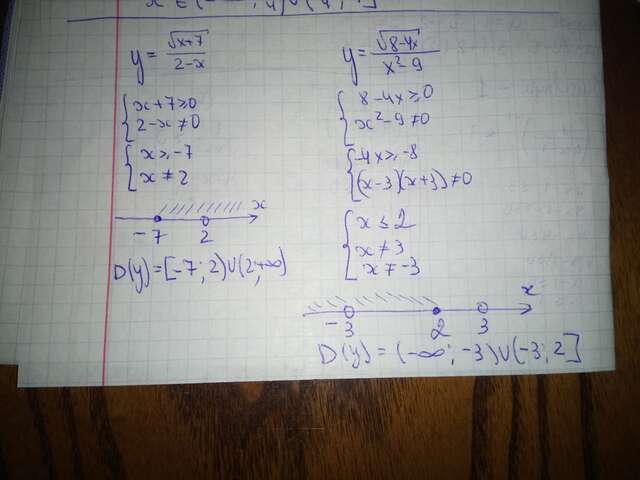 x ∈ (-∞; 4) ∪ (4;
y = √(x+7) / (2-x)
{ x+7≥0
2-x≠0
{ x≥-7
x≠2
x
-7 2
D(y)=[-7; 2)∪(2;+∞]
y = √(8-4x) / (x²-9)
{ 8-4x≥0
x²-9≠0
{ -4x≥-8
(x-3)(x+3)≠0
{ x≤2
x≠3
x≠-3
x
-3 2 3
D(y) = (-∞; -3)∪(-3; 2]